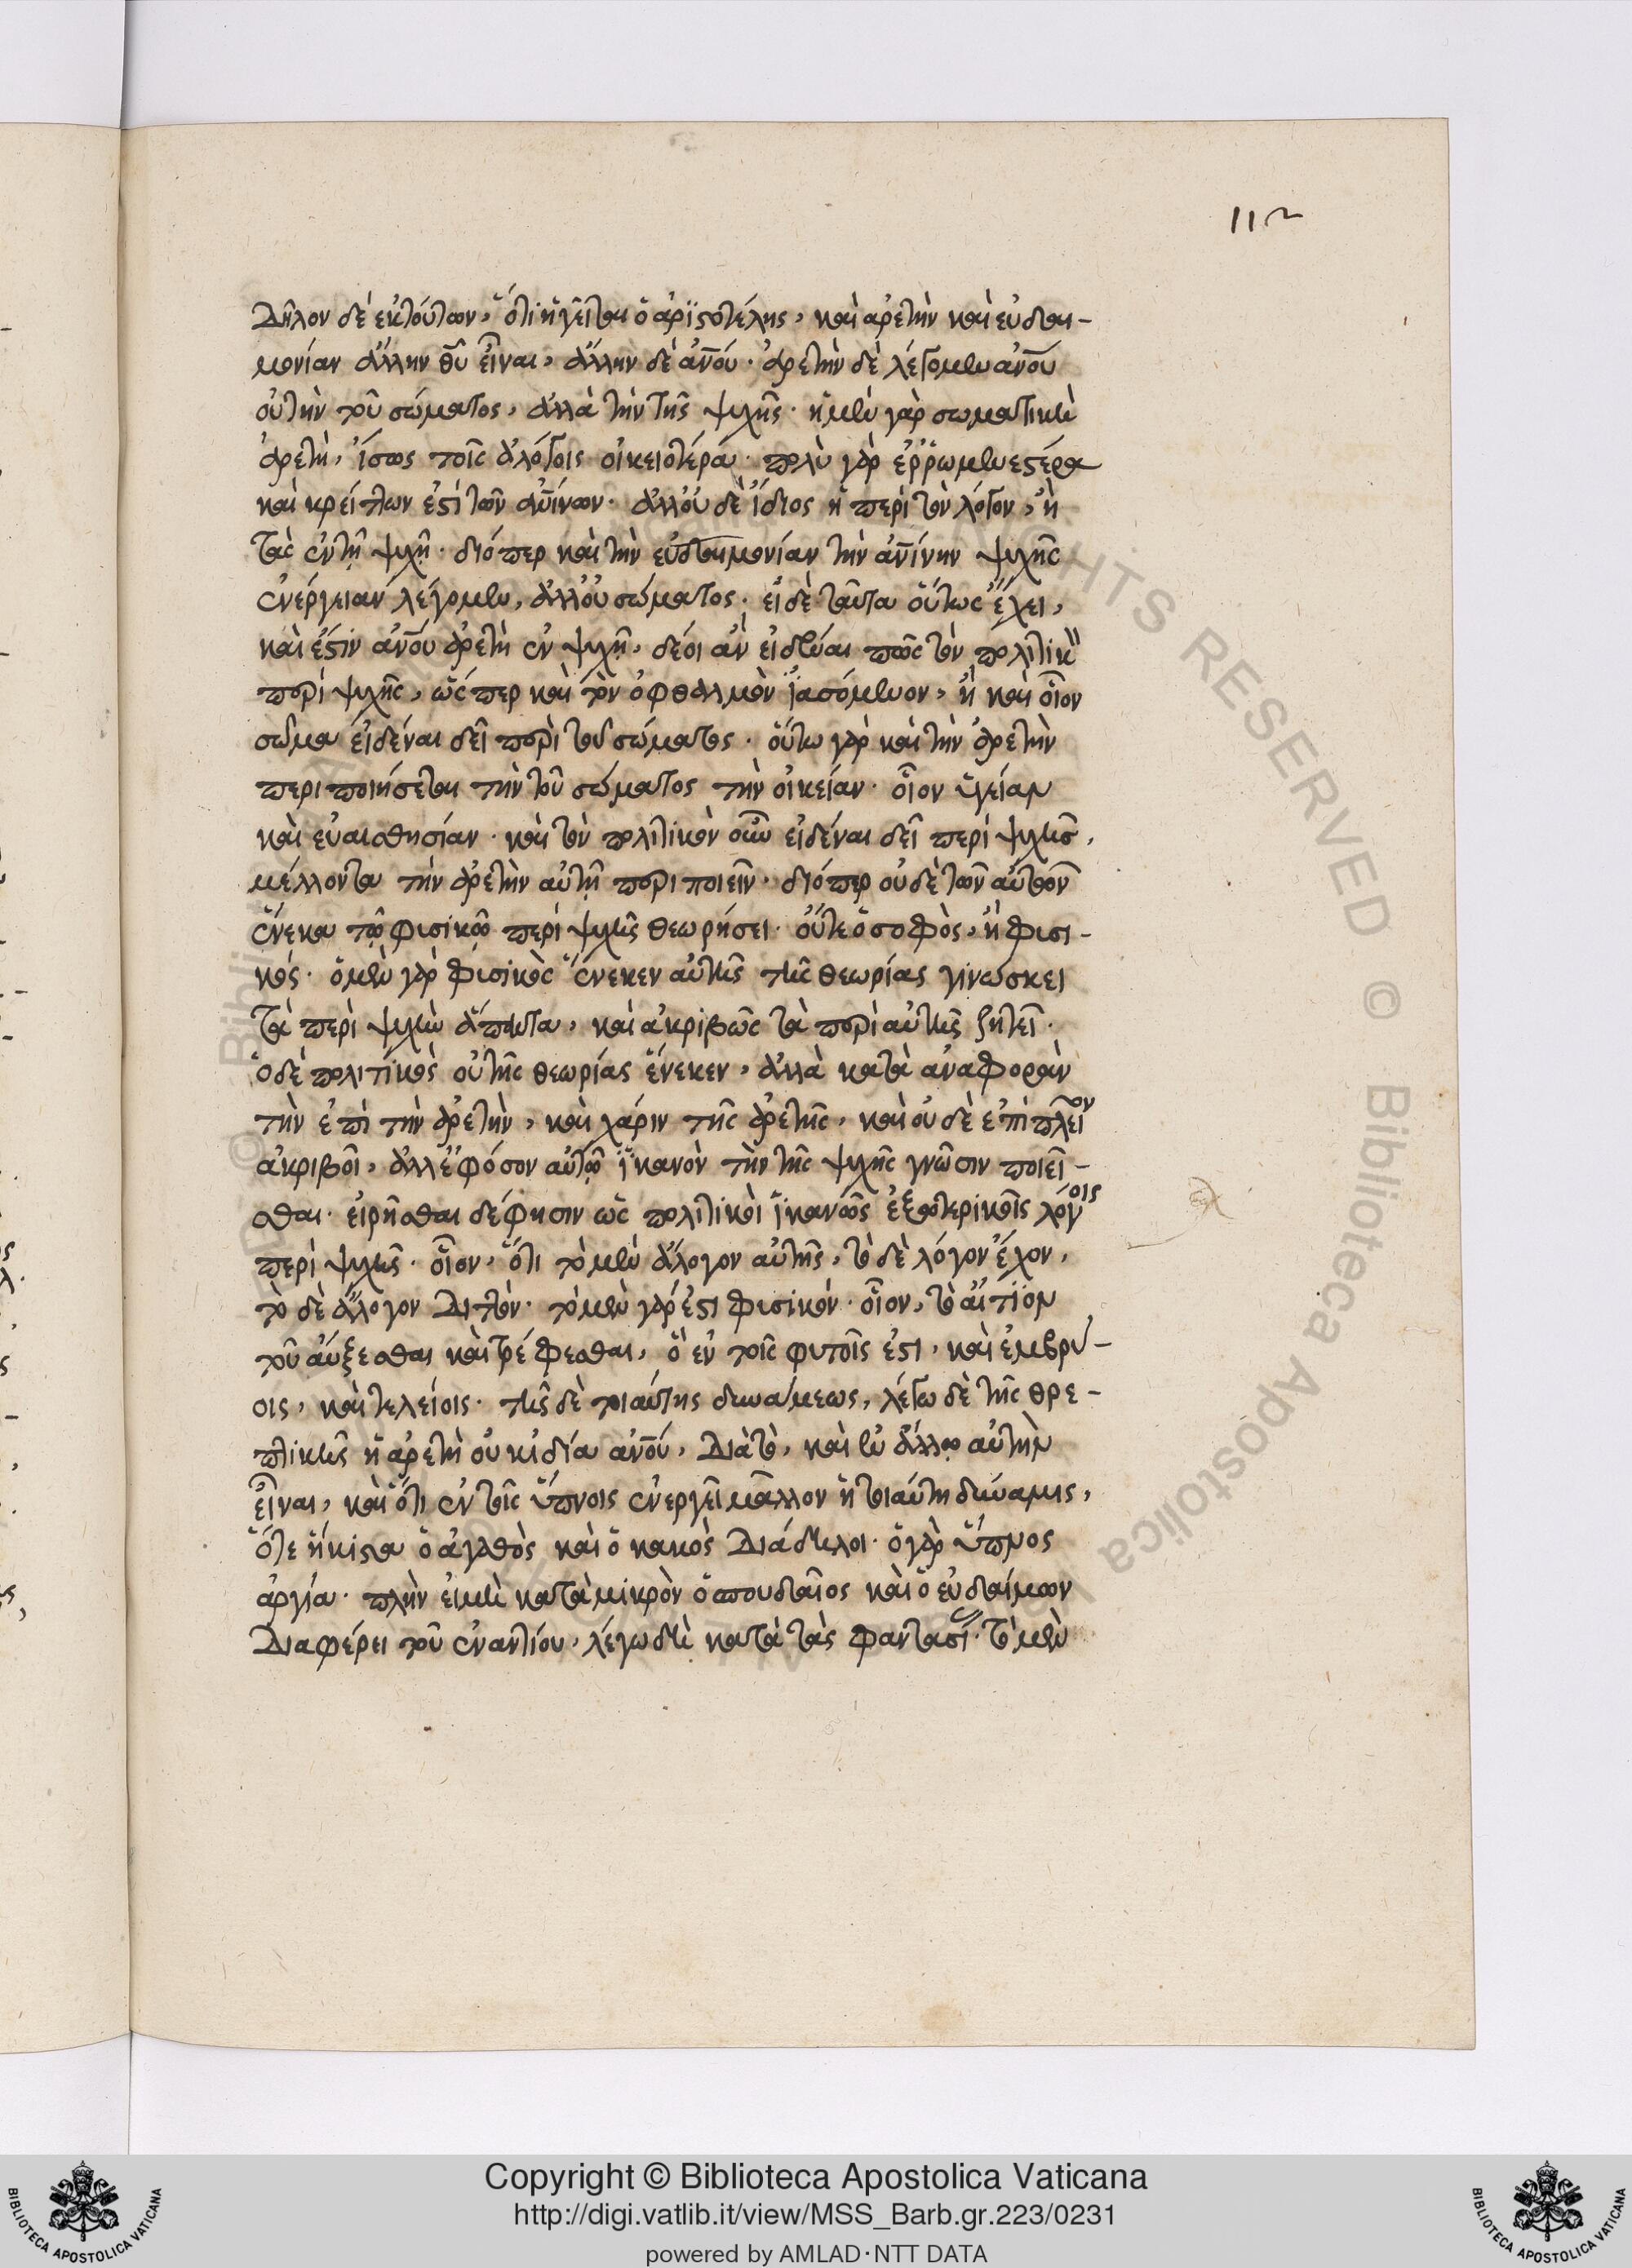 112
Δῆλον δὲ ἐκ τούτων, ὅτι ἡγεῖται ὁ ἀριστοτέλης, καὶ ἀρετὴν καὶ εὐδαι-
μονίαν ἄλλην θῦ εἶναι, ἄλλην δὲ ἀνοῦ. ἀρετὴν δὲ λέγομεν ἀνοῦ
οὐ τὴν τοῦ σώματος, ἀλλὰ τὴν τῆς ψυχῆς. ἡ μὲν γὰρ σωματικὴ
ἀρετὴ, ἴσως τοῖς ἀλόγοις οἰκειοτέρα. πολὺ γὰρ ἐρρωμενεστέρα
καὶ κρείττων ἐστὶ τῶν ἀνίνων. ἀλλ' οὐδὲ ἴδιος ἡ περὶ τὸν λόγον, ἢ
τὰς ἐν τῇ ψυχῇ. διόπερ καὶ τὴν εὐδαιμονίαν τὴν ἀνίνην ψυχῆς
ἐνέργειαν λέγομεν, ἀλλ' οὐ σώματος. εἰ δὲ ταῦτα οὕτως ἔχει,
καὶ ἔστιν ἀνοῦ ἀρετὴ ἐν ψυχῇ, δέοι ἂν εἰδέναι πῶς τὸν πολιτικ
περὶ ψυχῆς, ὥσπερ καὶ τὸν ὀφθαλμὸν ἰασόμενον, ἢ καὶ οἷον
σῶμα εἰδέναι δεῖ περὶ τοῦ σώματος. οὕτω γὰρ καὶ τὴν ἀρετὴν
περιποιήσεται τὴν τοῦ σώματος τὴν οἰκείαν. οἷον ὑγείαν
καὶ εὐαισθησίαν. καὶ τὸν πολιτικὸν οὖν εἰδέναι δεῖ περὶ ψυχῆς,
μέλλοντα τὴν ἀρετὴν αὐτῇ περιποιεῖν. διόπερ οὐδὲ τῶν αὐτῶν
ἕνεκα τῷ φυσικῷ περὶ ψυχῆς θεωρήσει. οὔτε ὁ σοφὸς, ἢ φυσι-
κός. ὁ μὲν γὰρ φυσικὸς ἕνεκεν αὐτῆς τῆς θεωρίας γινώσκει
τὰ περὶ ψυχὴν ἅπαντα, καὶ ἀκριβῶς τὰ περὶ αὐτῆς ζητεῖ.
ὁ δὲ πολιτικὸς οὐ τῆς θεωρίας ἕνεκεν, ἀλλὰ κατὰ ἀναφορὰν
τὴν ἐπὶ τὴν ἀρετὴν, καὶ χάριν τῆς ἀρετῆς, καὶ οὐδὲ ἐπὶ πλεῖον
ἀκριβοῖ, ἀλλ' ἐφόσον αὐτῷ ἱκανὸν τὴν τῆς ψυχῆς γνῶσιν ποιεῖ-
σθαι. εἰρῆσθαι δέ φησιν ὡς πολιτικοὶ ἱκανῶς ἐξωτερικοῖς λόγοις
περὶ ψυχῆς. οἷον, ὅτι τὸ μὲν ἄλογον αὐτῆς, τὸ δὲ λόγον ἔχον,
τὸ δὲ ἄλογον διττὸν. τὸ μὲν γάρ ἐστι φυσικόν. οἷον, τὸ αἴτιον
τοῦ αὔξεσθαι καὶ τρέφεσθαι, ὃ ἐν τοῖς φυτοῖς ἐστι, καὶ ἐμβρύ-
οις, καὶ τελείοις. τῆς δὲ τοιαύτης δυνάμεως, λέγω δὲ τῆς θρε-
πτικῆς ἡ ἀρετὴ οὐκ ἰδία ἀνοῦ, διὰ τὸ, καὶ ἐν ἄλλῳ αὐτὴν
εἶναι, καὶ ὅτι ἐν τοῖς ὕπνοις ἐνεργεῖ μᾶλλον ἡ τοιαύτη δύναμις,
ὅτε ἥκιστα ὁ ἀγαθὸς καὶ ὁ κακὸς διάδηλοι. ὁ γὰρ ὕπνος
ἀργία. πλὴν εἰ μὴ κατὰ μικρὸν ὁ σπουδαῖος καὶ ὁ εὐδαίμων
Διαφέρει τοῦ ἐναντίου, λέγω δὴ κατὰ τὰς φαντασί. τὸ μὲν
Copyright © Biblioteca Apostolica Vaticana
http://digi.vatlib.it/view/MSS_Barb.gr.223/0231
powered by AMLAD·NTT DATA